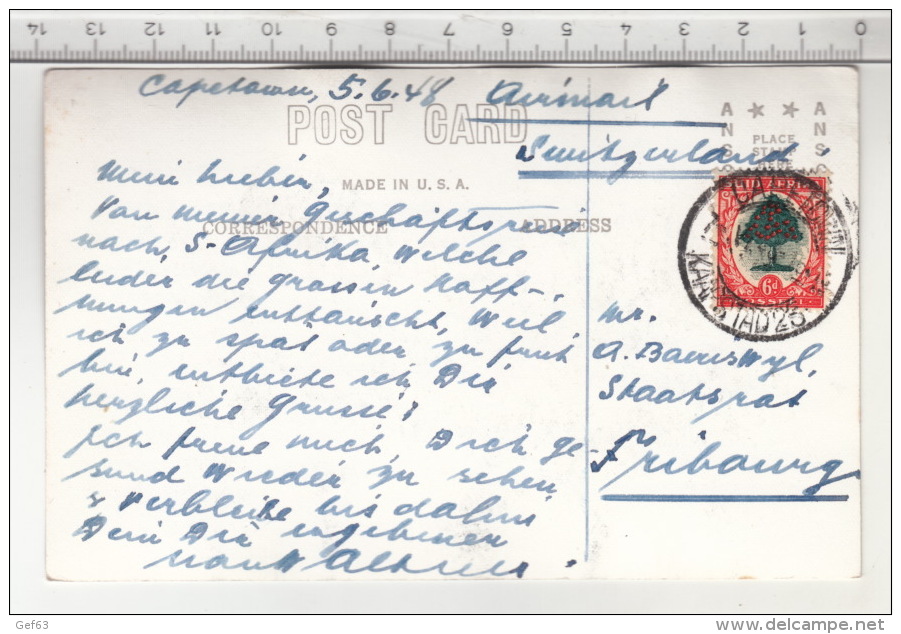 14 13 12 11 10 9 8 7 6 5 4 3 2 1 0
Capetown, 5.6.48
POST CARD
MADE IN U.S.A.
CORRESPONDENCE
Mein Lieber,
Von meiner Geschäftsreise
nach S-Afrika, Welche
leider die grossen Hoff-
nungen enttäuscht, Weil
ich zu spät oder zu früh
bin, entbiete ich Dir
herzliche Grüsse!
Ich freue mich, Dich ge-
sund Wieder zu sehen
& verbleibe bis dahin
Dein Dir ergebener
Airmail
Switzerland.
ADDRESS
ANS
PLACE
HERE
ANS
SUID-AFRIKA
6d
POSSEËL
KAAPSTAD 25
Mr.
A. Baeriswyl,
Staatsrat
Fribourg
Gef63
delcampe.net